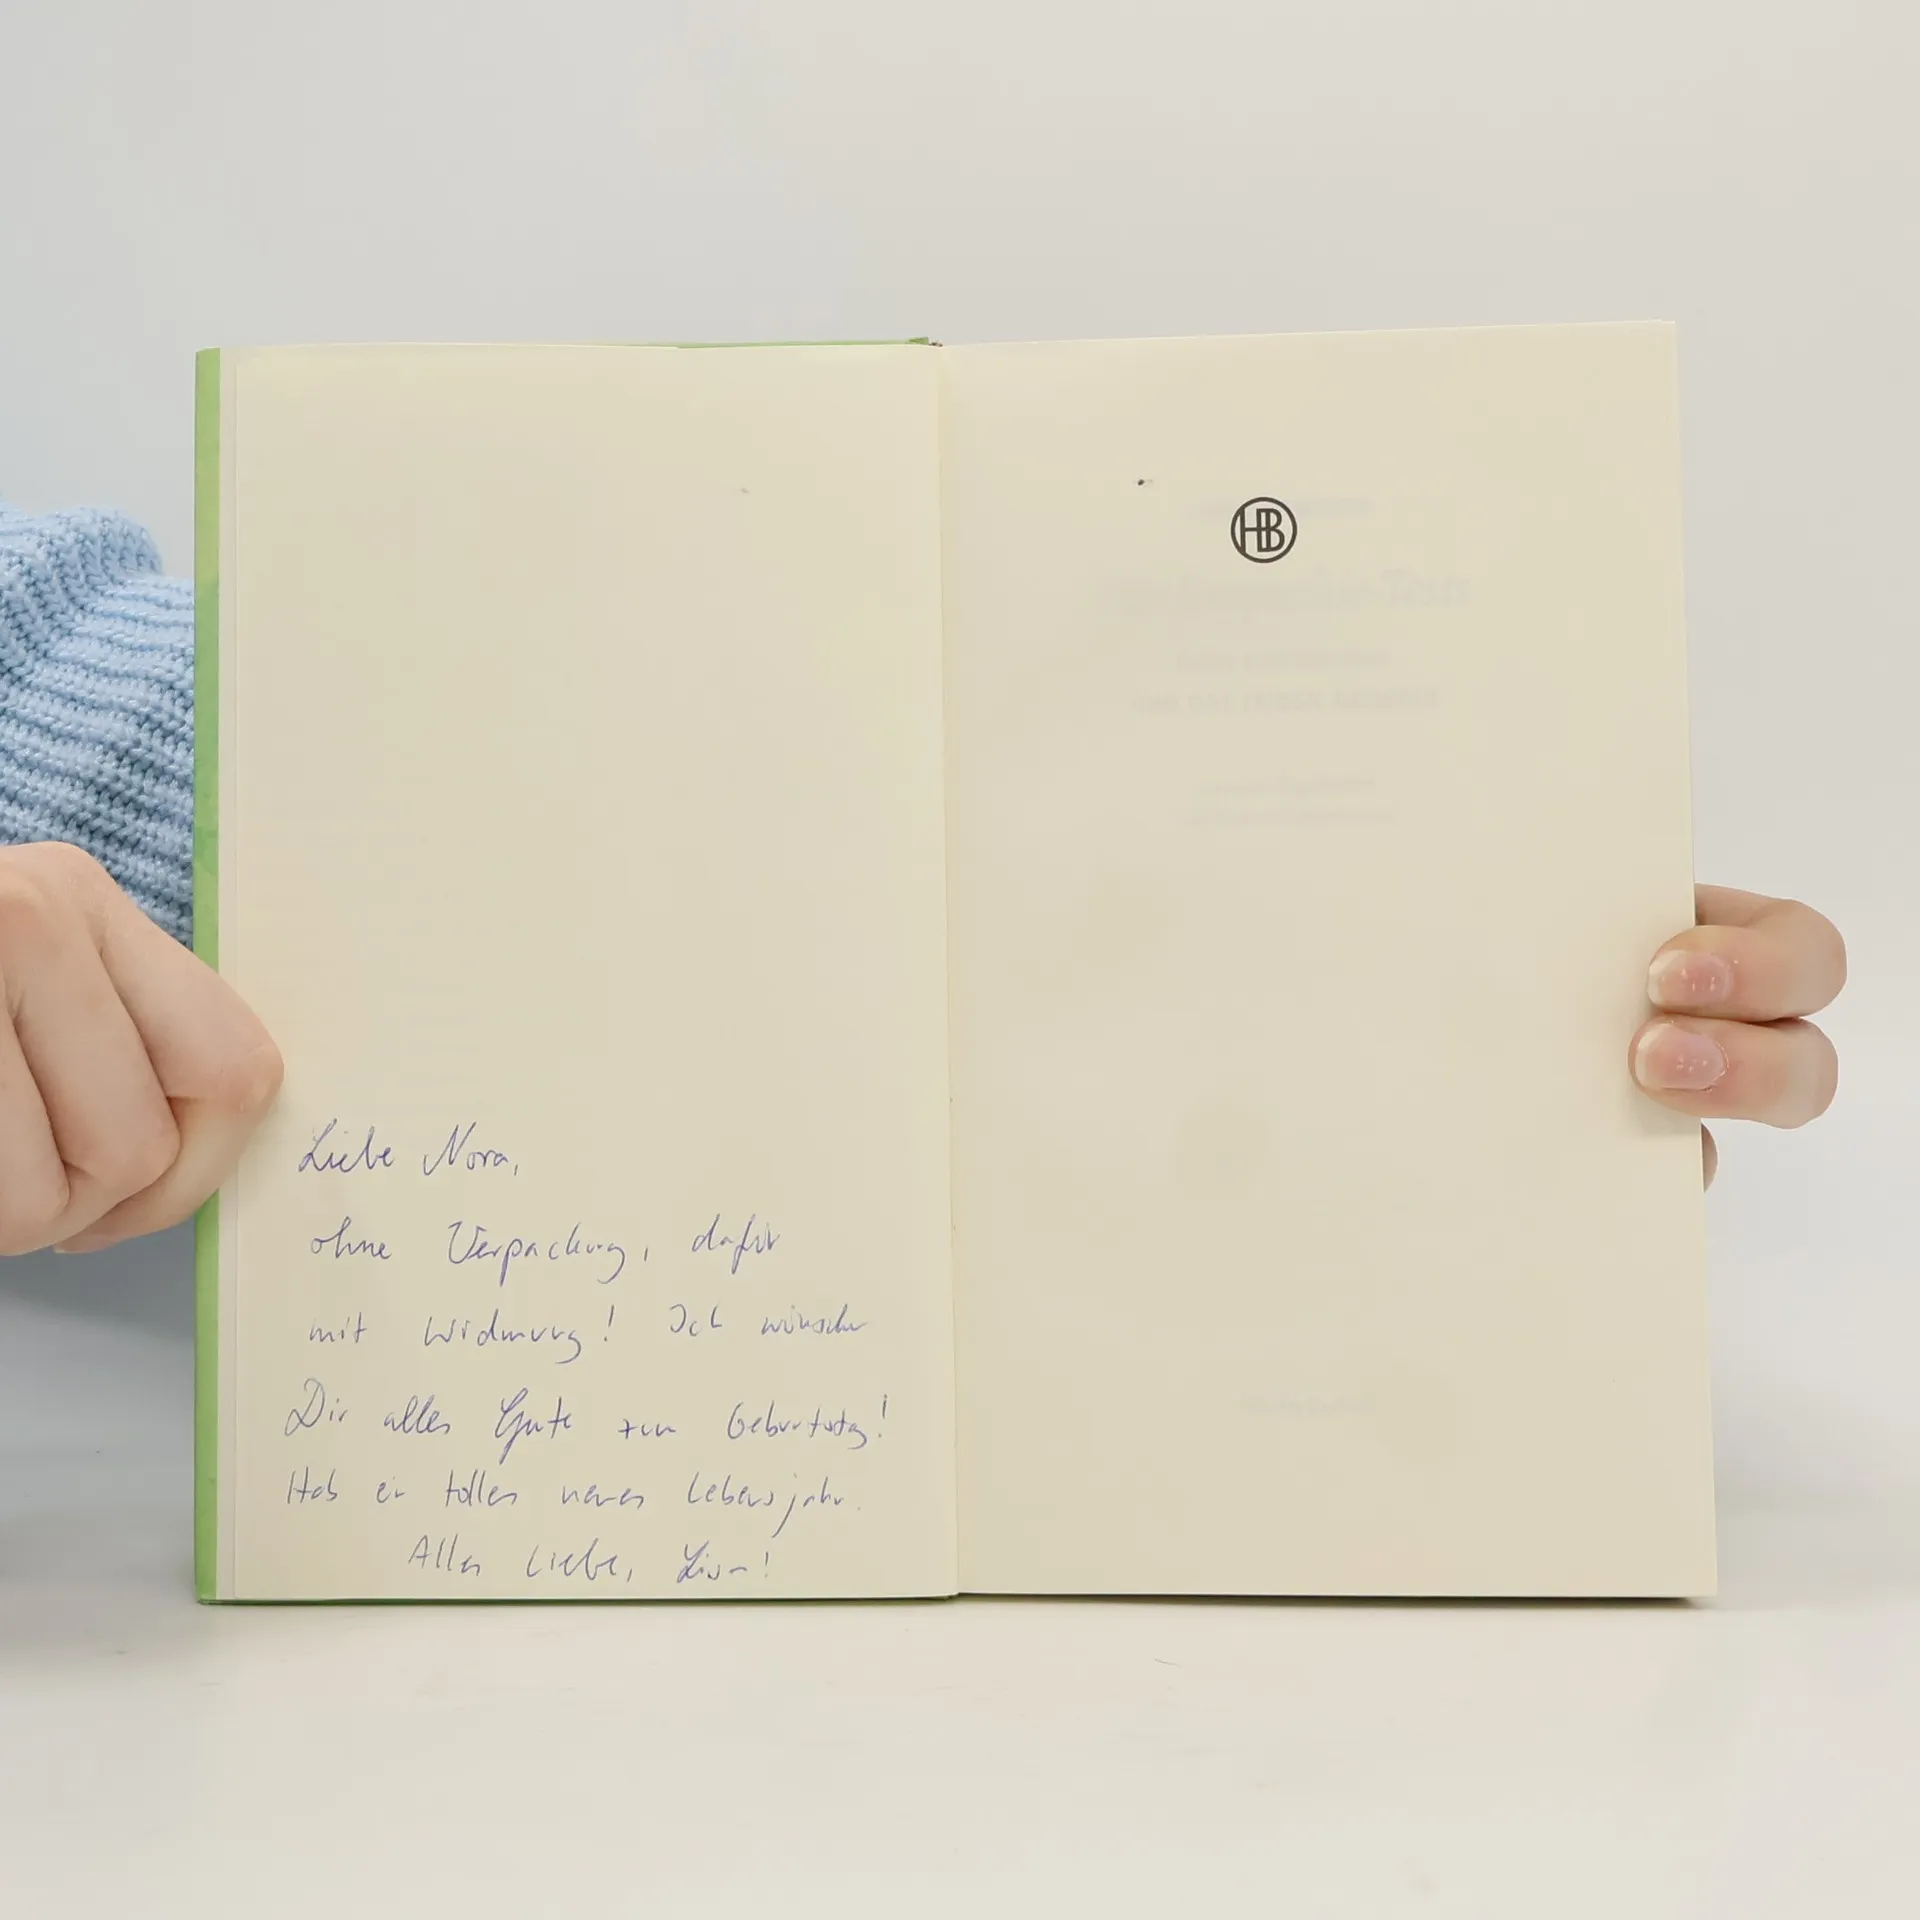 HB
Liebe Nora,
ohne Verpackung, dafür
mit Widmung! Ich wünsche
Dir alles Gute zum Geburtstag!
Hab ein tolles neues Lebensjahr.
Alles Liebe, Lisa!